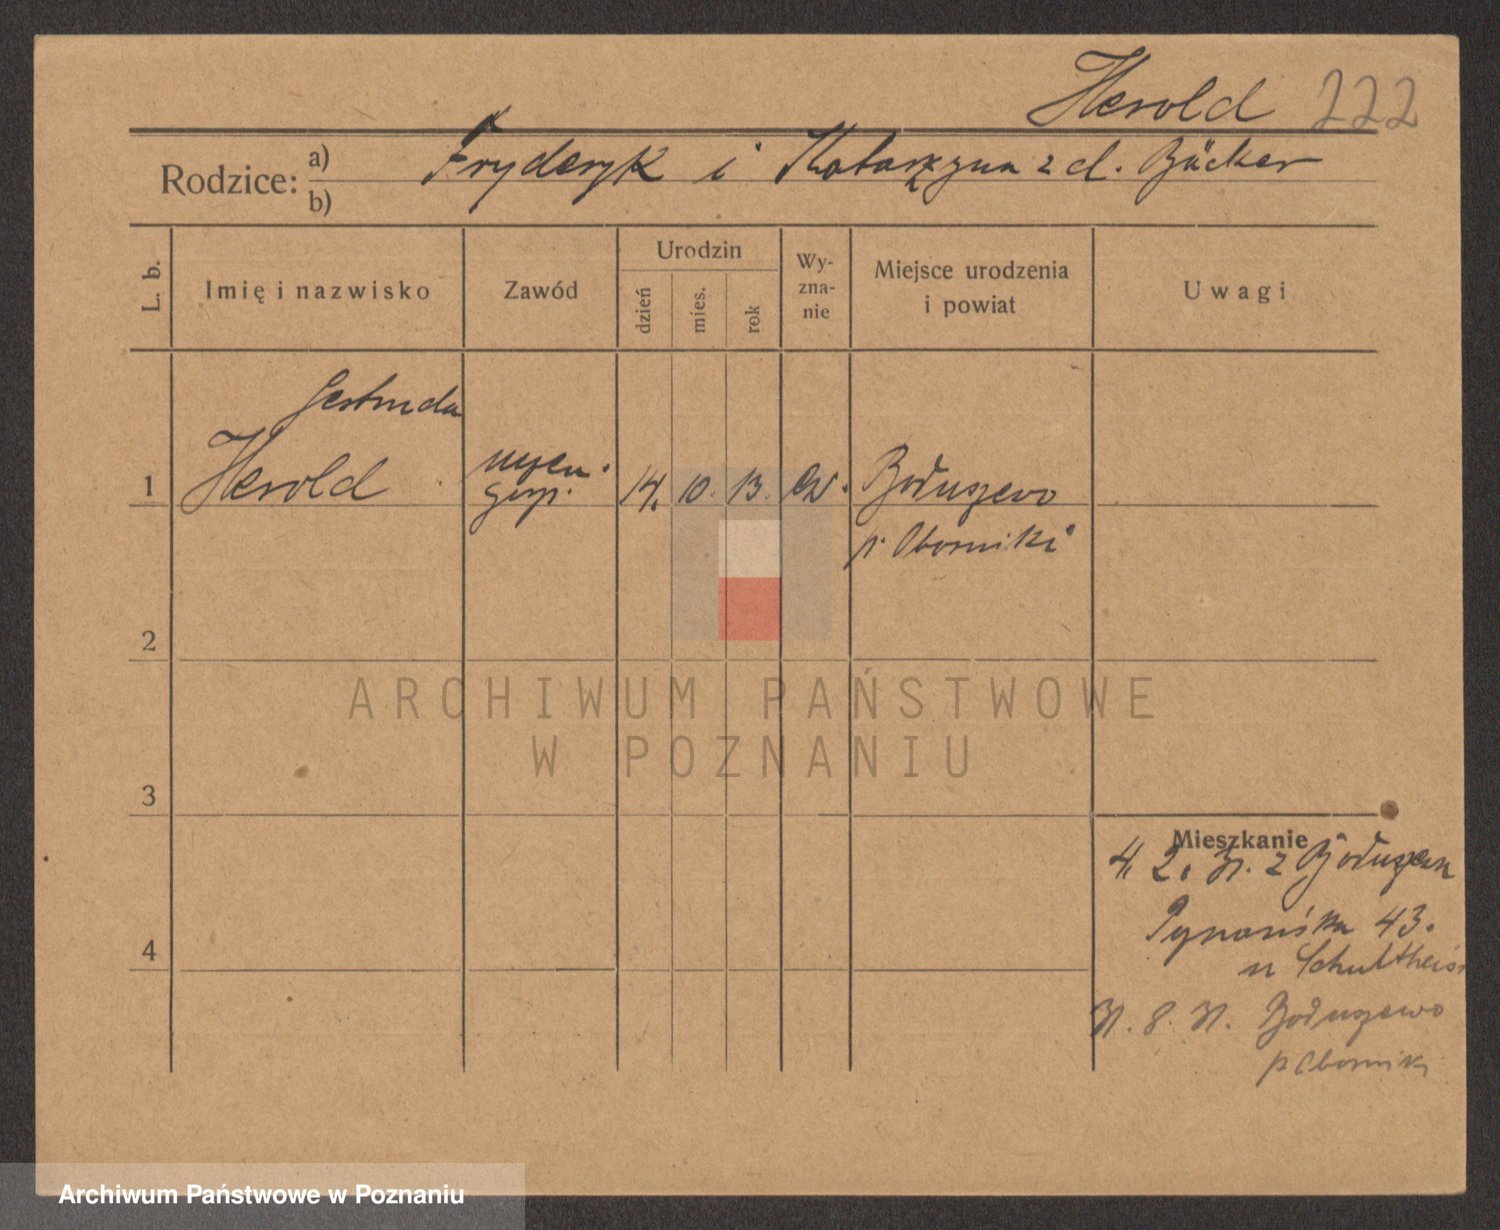 Herold 222
Rodzice: a) Fryderyk i Katarzyna z d. Bäcker
b)
L. b.
Imię i nazwisko
Zawód
Urodzin
dzień
mies.
rok
Wy-
zna-
nie
Miejsce urodzenia
i powiat
Uwagi
Gertruda
1 Herold
uczen.
gosp.
14. 10. 13. ew.
Bołuszewo
p. Oborniki
2
3
4
Mieszkanie
4. 2. 31. z Bołuszewa
43.
u Schultheiss
31. 8. 31. Bołuszewo
p. Oborniki
ARCHIWUM PAŃSTWOWE
W POZNANIU
Archiwum Państwowe w Poznaniu